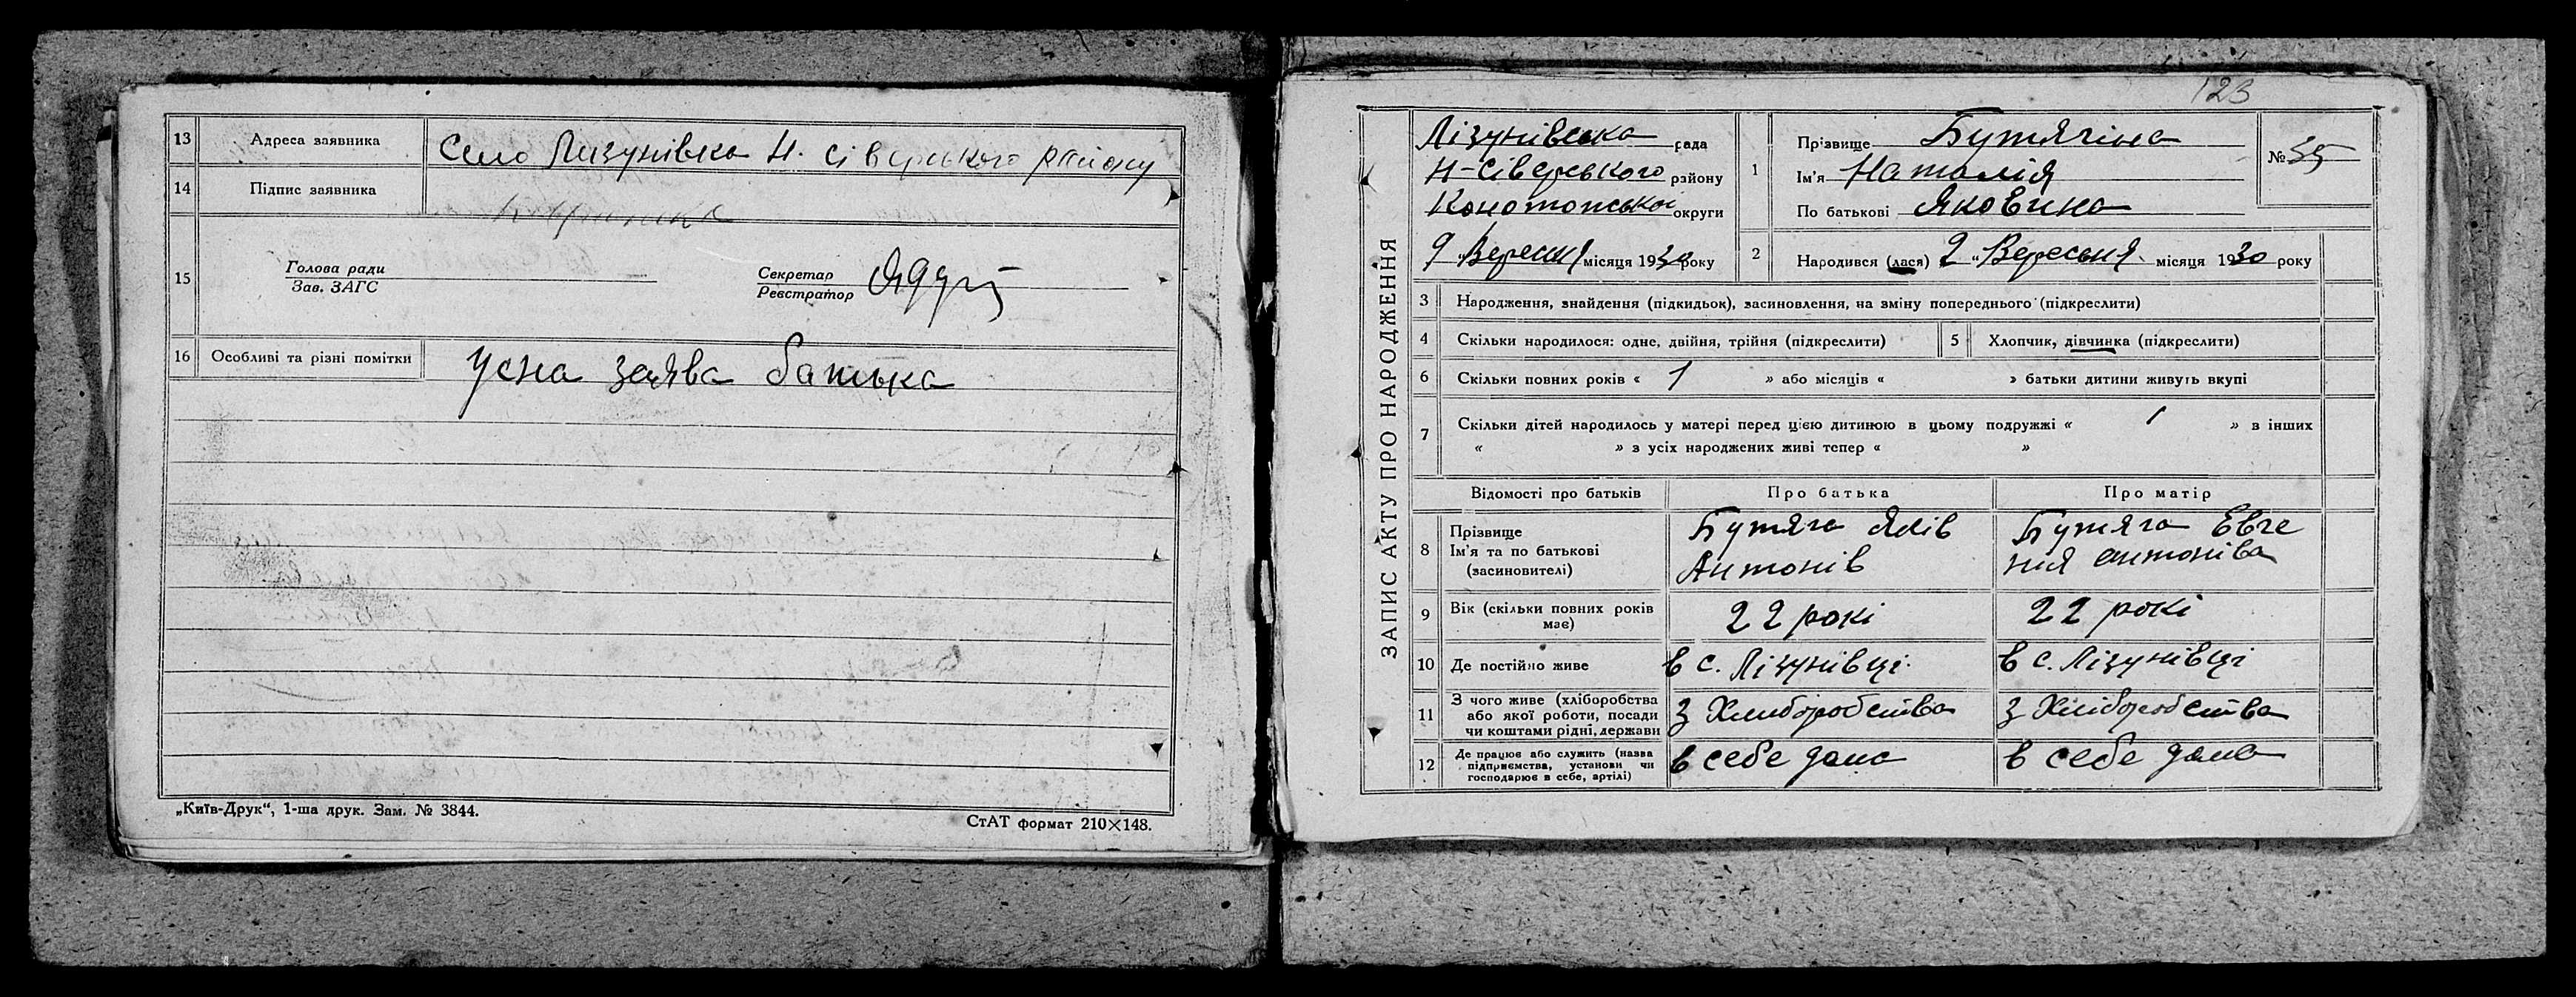 13 Адреса заявника Село Лизунівка Н. Сіверського району
14 Підпис заявника
15 Голова ради Зав. ЗАГС Секретар Реєстратор
16 Особливі та різні помітки Усна заява батька
„Київ-Друк“, 1-ша друк. Зам. № 3844.
СтАТ формат 210×148.
123
ЗАПИС АКТУ ПРО НАРОДЖЕННЯ
Лізунівська рада
Н-Сіверського району
Конотопської округи
9 Вересня місяця 1930 року
1 Прізвище Бутягіна
Ім'я Наталія
По батькові Яковина
№ 55
2 Народився (лася) 2 „ Вересня місяця 1930 року
3 Народження, знайдення (підкидьок), засиновлення, на зміну попереднього (підкреслити)
4 Скільки народилося: одне, двійня, трійня (підкреслити) 5 Хлопчик, дівчинка (підкреслити)
6 Скільки повних років « 1 » або місяців « » батьки дитини живуть вкупі
7 Скільки дітей народилось у матері перед цією дитиною в цьому подружжі « 1 » в інших
« » з усіх народжених живі тепер « »
Відомості про батьків Про батька Про матір
8 Прізвище Ім'я та по батькові (засиновителі)
Бутяга Яків
Антонів
Бутяга Евге
ния антоніва
9 Вік (скільки повних років має) 22 рокі 22 рокі
10 Де постійно живе в с. Лізунівці. в с. Лізунівці
11 З чого живе (хліборобства
або якої роботи, посади
чи коштами рідні, держави
З Хлиборобства З Хліборобства
12 Де працює або служить (назва
підприємства, установи чи
господарює в себе, артілі)
в себе дома в себе дома